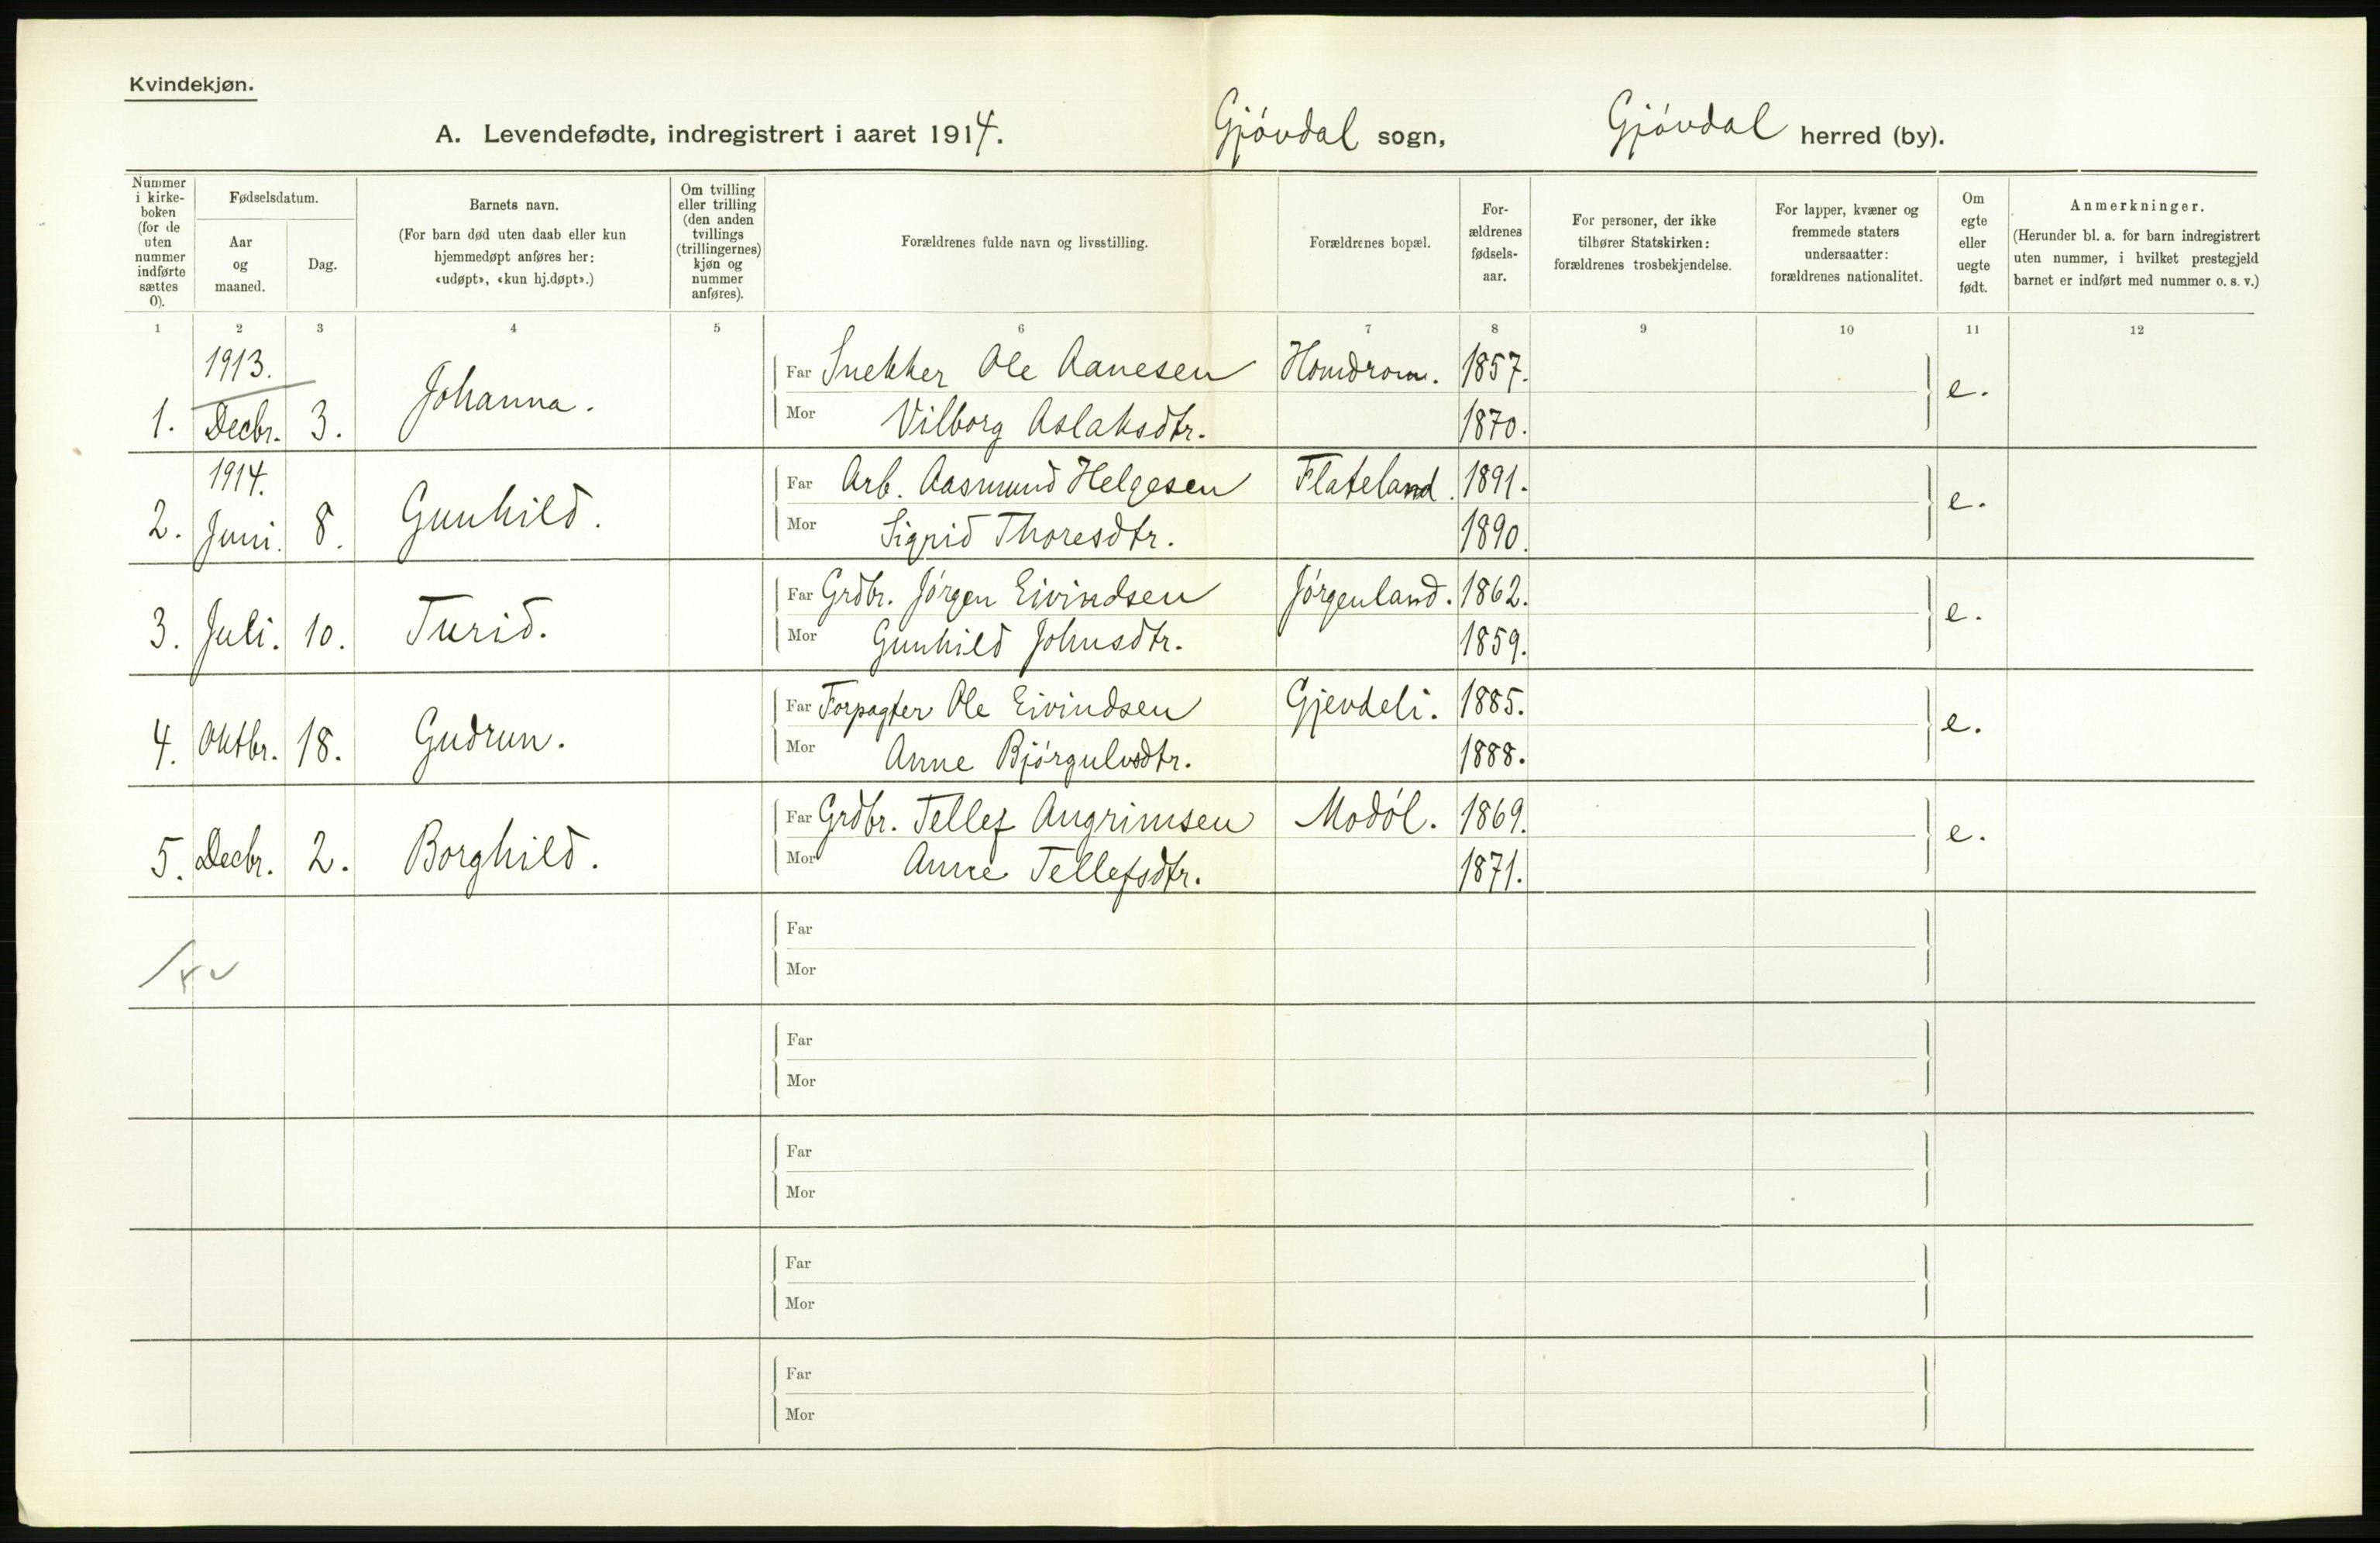 Kvindekjøn.
A. Levendefødte, indregistrert i aaret 1914. Gjóvdal sogn, Gjóvdal herred (by).
Nummer i kirke- boken (for de uten nummer indførte sættes 0).
Fødselsdatum.
Aar og maaned.
Dag.
Barnets navn.
(For barn død uten daab eller kun hjemmedøpt anføres her: «udøpt», «kun hj.døpt».)
Om tvilling eller trilling (den anden tvillings (trillingernes) kjøn og nummer anføres).
Forældrenes fulde navn og livsstilling.
Forældrenes bopæl.
For- ældrenes fødsels- aar.
For personer, der ikke tilhører Statskirken: forældrenes trosbekjendelse.
For lapper, kvæner og fremmede staters undersaatter: forældrenes nationalitet.
Om egte eller uegte født.
Anmerkninger.
(Herunder bl. a. for barn indregistrert uten nummer, i hvilket prestegjeld barnet er indført med nummer o. s. v.)
1 2 3 4 5 6 7 8 9 10 11 12
1913.
Far Snekker Ole Aanesen Homdrom. 1857.
1. Decbr. 3. Johanna. e.
Mor Vilborg Aslaksdtr. 1870.
1914.
Far Arb. Aasmund Helgesen Flateland. 1891.
2. Juni. 8. Gunhild. e.
Mor Sigrid Thoresdtr. 1890.
Far Grdbr. Jórgen Eivindsen Jórgenland. 1862.
3. Juli. 10. Turid. e.
Mor Gunhild Johnsdtr. 1859.
Far Forpagter Ole Eivindsen Gjevdeli. 1885.
4. Oktbr. 18. Gudrun. e.
Mor Anne Bjórgulvsdtr. 1888.
Far Grdbr. Tellef Angrimsen Modól. 1869.
5. Decbr. 2. Borghild. e.
Mor Anne Tellefsdtr. 1871.
Far
Mor
Far
Mor
Far
Mor
Far
Mor
Far
Mor